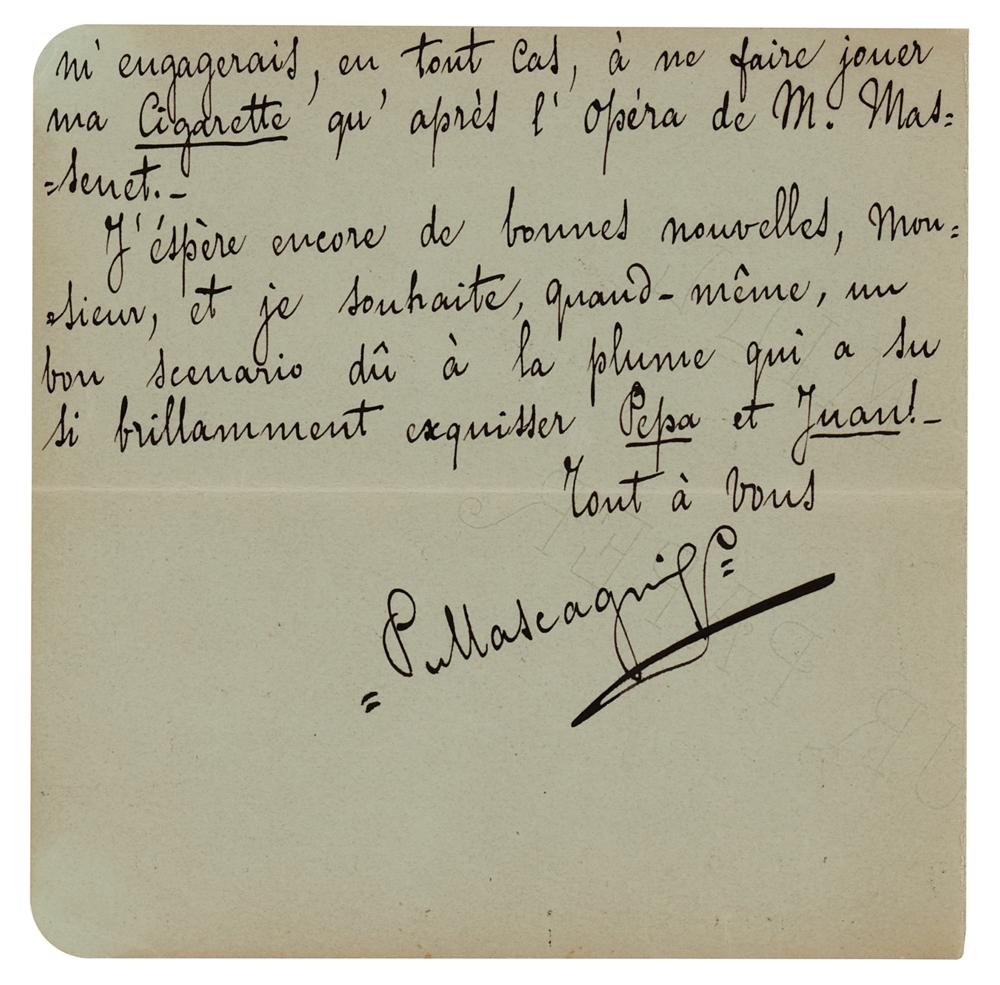 m'engagerais, en tout cas, à ne faire jouer
ma Cigarette qu'après l'Opéra de M. Mas=
=senet.–
J'éspère encore de bonnes nouvelles, Mon=
=sieur, et je souhaite, quand-même, un
bon scenario dû à la plume qui a su
si brillamment exquisser Pepa et Juan!–
Tout à vous
P. Mascagni